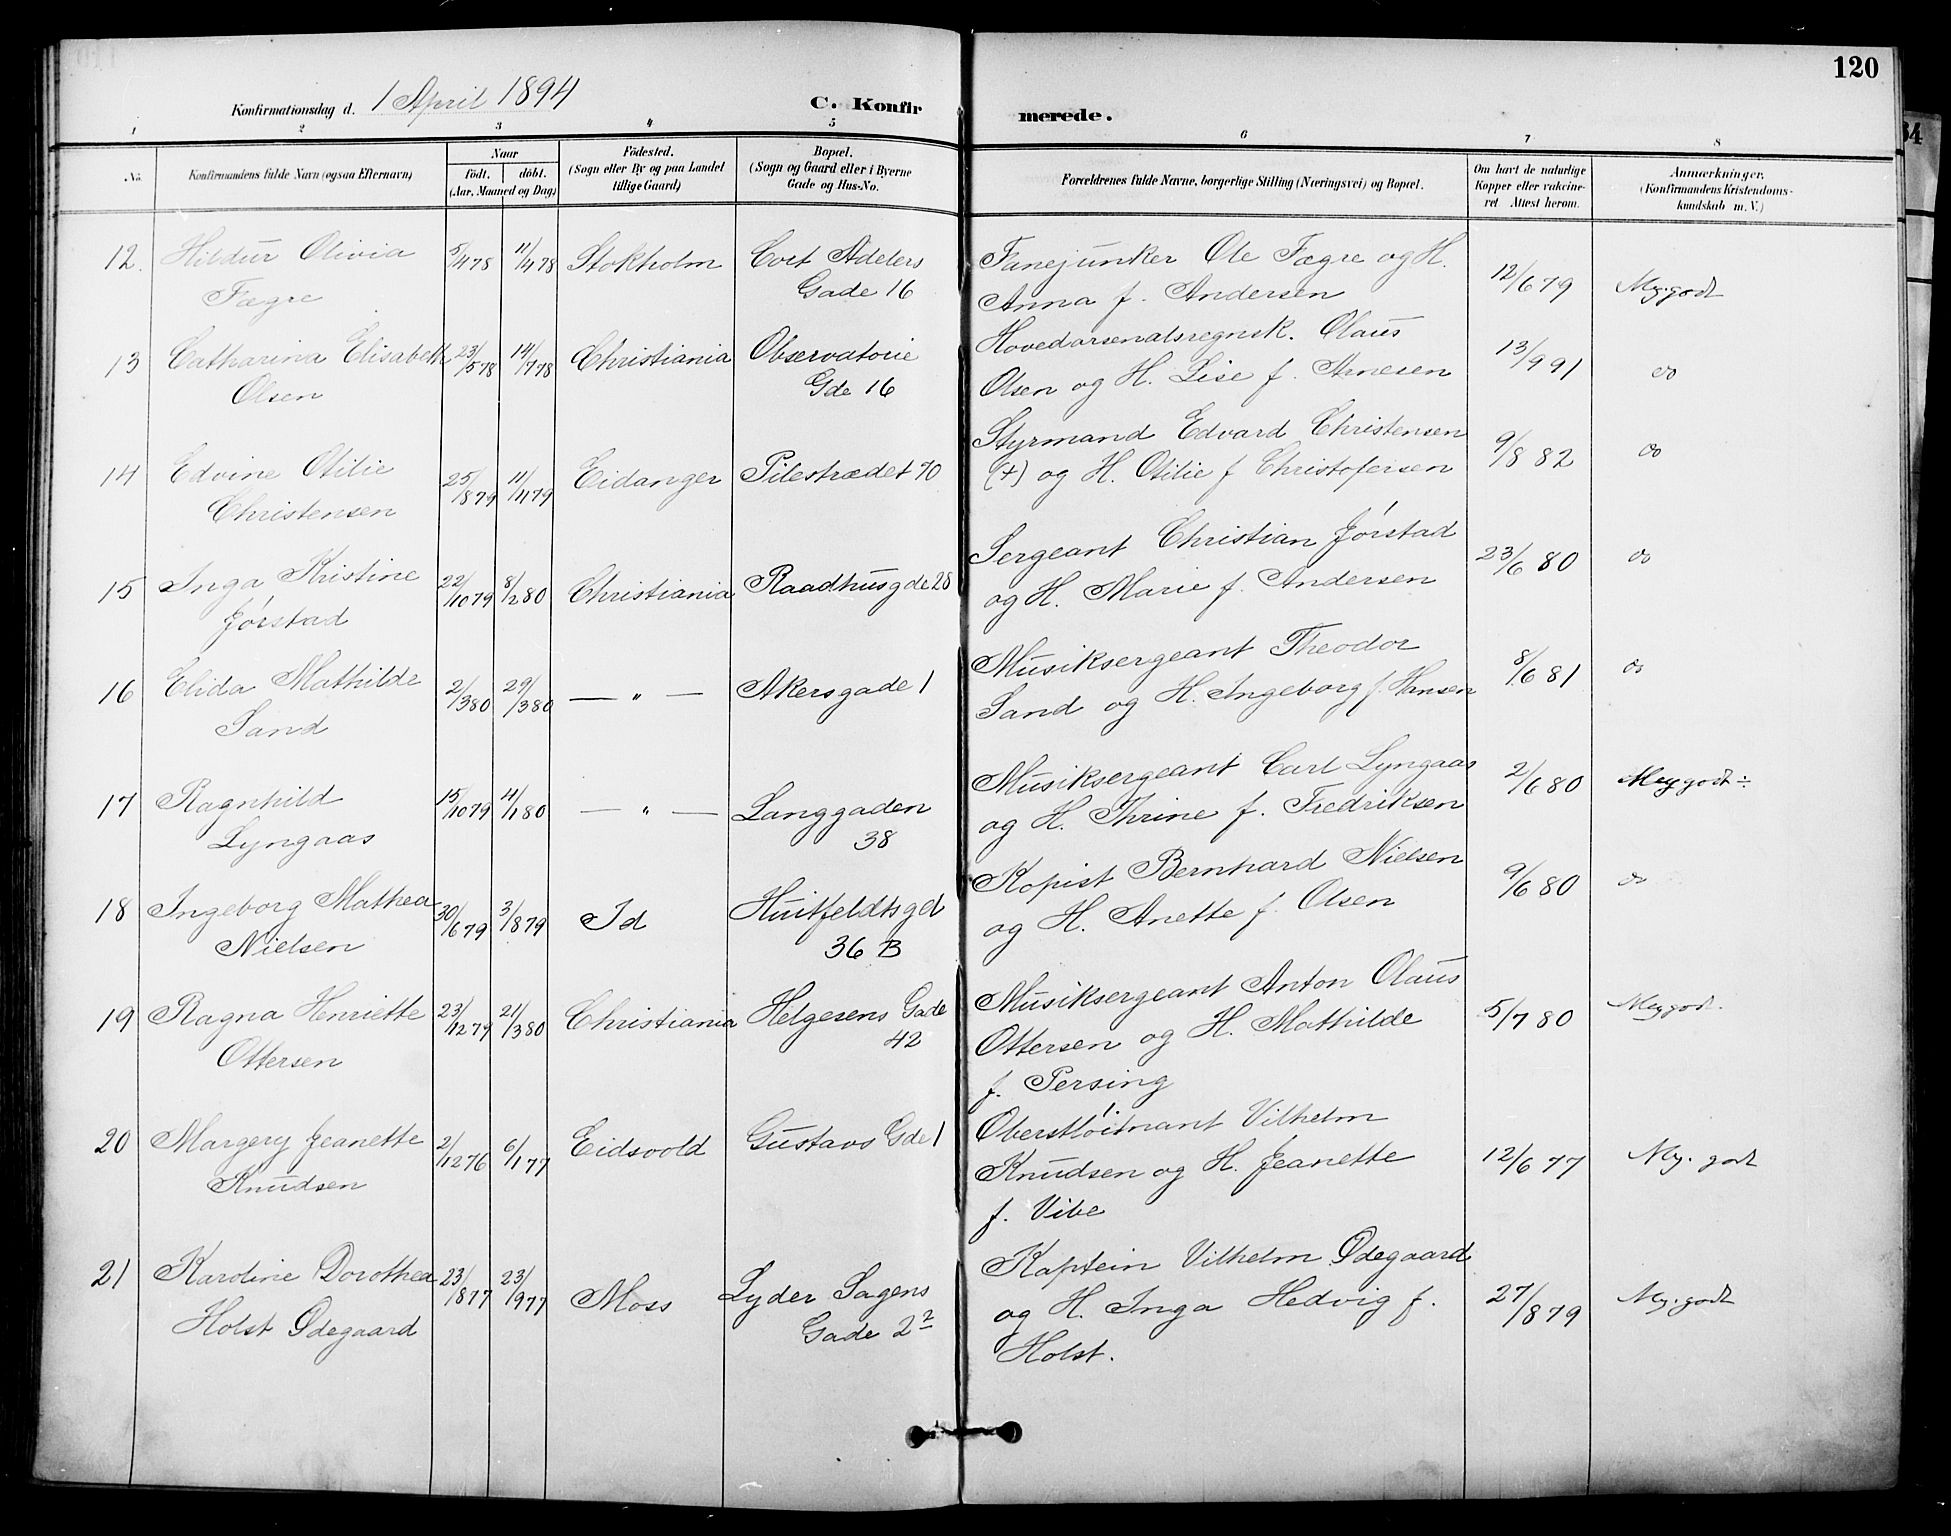 120
Konfirmationsdag d. 1 April 1894 C. Konfir merede.
1 2 3 4 5 6 7 8
No. Konfirmandens fulde Navn (ogsaa Efternavn) Naar födt. döbt. (Aar, Maaned og Dag) Födested. (Sogn eller By og paa Landet tillige Gaard) Bopæl. (Sogn og Gaard eller i Byerne Gade og Hus-No. Forældrenes fulde Navne, borgerlige Stilling (Næringsvei) og Bopæl. Om havt de naturlige Kopper eller vakcineret Attest herom. Anmærkninger. (Konfirmandens Kristendomskundskab m. V.)
12. Hildur Olivia 5/4 78 11/4 78 Stokholm Cort Adelers Fanejunker Ole Fægre og H. 12/6 79 Mg. godt
Fægre Gade 16 Anna f. Andersen
13 Catharina Elisabeth 23/5 78 14/7 78 Christiania Observatorie Hovedarsenalsregnsk. Olaus 13/9 91 do
Olsen Gde 16 Olsen og H. Lise f. Arnesen
14 Edvine Otilie 25/8 79 11/11 79 Eidanger Pilestrædet 70 Styrmand Edvard Christensen 9/8 82 do
Christensen (+) og H. Otilie f Christofersen
15 Inga Kristine 22/10 79 8/2 80 Christiania Raadhusgde 28 Sergeant Christian Jørstad 23/6 80 do
Jørstad og H. Marie f. Andersen
16 Elida Mathilde 2/3 80 29/3 80 — " — Akersgade 1 Musiksergeant Theodor 8/6 81 do
Sand Sand og H. Ingeborg f. Hansen
17 Ragnhild 15/10 79 4/1 80 — " — Langgaden Musiksergeant Carl Lyngaas 2/6 80 Meg godt ÷
Lyngaas 38 og H. Thrine f. Fredriksen
18 Ingeborg Mathea 30/6 79 3/8 79 Id Huitfeldtsgd Kopist Bernhard Nielsen 9/6 80 do
Nielsen 36 B og H. Anette f. Olsen
19 Ragna Henriette 23/12 79 21/3 80 Christiania Helgesens Gade Musiksergeant Anton Olaus 5/7 80 Meg god.
Ottersen 42 Ottersen og H. Mathilde
f. Persing
20 Margery Jeanette 2/12 76 6/1 77 Eidsvold Gustavs Gde 1 Oberstløitnant Vilhelm 12/6 77 Mg. godt
Knudsen Knudsen og H. Jeanette
f. Vibe
21 Karoline Dorothea 23/8 77 23/9 77 Moss Lyder Sagens Kaptein Vilhelm Ødegaard 27/8 79 Mg. godt
Holst Ødegaard Gade 2² og H. Inga Hedvig f.
Holst.